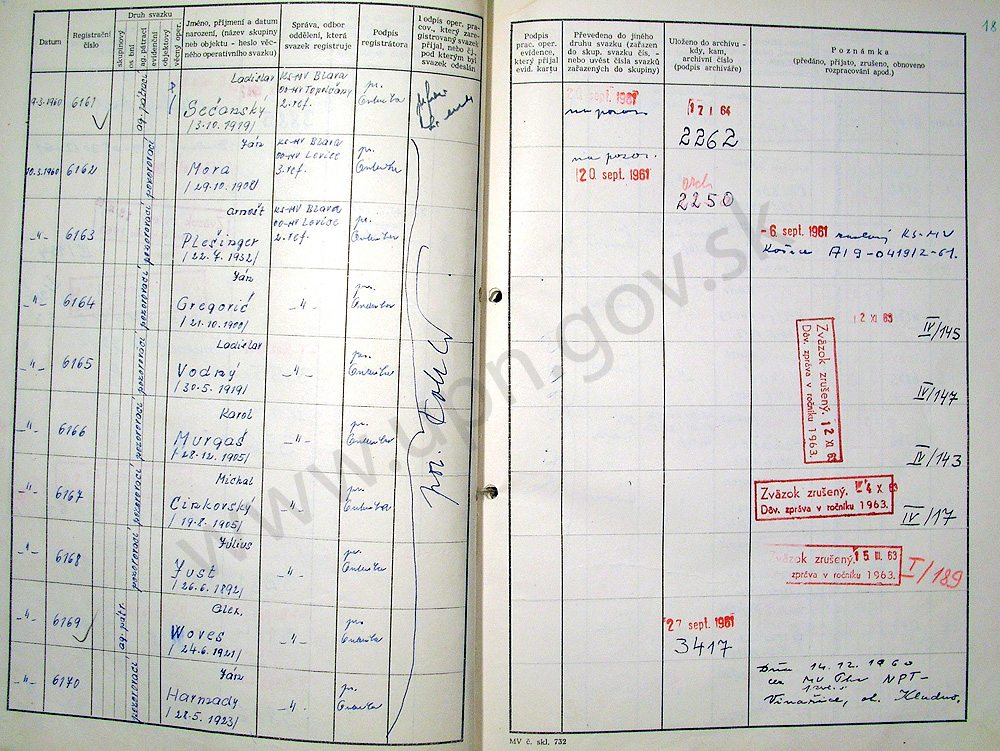 Datum
Registrační číslo
Druh svazku
skupinový
os bní
ag. pátrací
evidenční
objektový
věcný oper.
Jméno, příjmení a datum
narození, (název skupiny
neb objektu - heslo věc-
ného operativního svazku)
Správa, odbor
oddělení, která
svazek registruje
Podpis
registrátora
Podpis oper. pra-
cov., který zare-
gistrovaný svazek
přijal, nebo čj.
pod kterým byl
svazek odeslán
Podpis
prac. oper.
evidence,
který přijal
evid. kartu
Převedeno do jiného
druhu svazku (zařazen
do skup. svazku čís. -
nebo uvést čísla svazků
zařazených do skupiny)
Uloženo do archivu -
kdy, kam,
archivní číslo
(podpis archiváře)
Poznámka
(předáno, přijato, zrušeno, obnoveno
rozpracování apod.)
18
9.3.1960 6161 ag. pátrací
Ladislav
Sečanský
/3.10.1919/
KS-MV Blava
OO-MV Topolčany
2. ref.
na pozor.
12 1 64
2262
10.3.1960 6162 pozorovací
Ján
Mora
KS-MV Blava
OO-MV Levice
3. ref.
na pozor.
20. sept. 1961
2250
-"- 6163 pozorovací
Arnošt
Plešinger
/22.7.1932/
KS-MV Blava
OO-MV Levice
2. ref.
- 6. sept. 1961 KS-MV
Košice A/9-0419/2-61.
-"- 6164 pozorovací
Ján
Gregorič
/21.10.1900/
-"-
2 XI 63
IV/145
-"- 6165 pozorovací
Ladislav
Vodný
/30.5.1919/
-"-
Zväzok zrušený. 12 XI 63
Dáv. zpráva v ročníku 1963.
IV/147
-"- 6166 pozorovací
Karol
Murgaš
/28.12.1905/
-"-
IV/143
-"- 6167 pozorovací
Michal
Cinkovský
/19.8.1905/
-"-
Zväzok zrušený. 4 X 63
Dáv. zpráva v ročníku 1963.
IV/17
-"- 6168 pozorovací
Július
Just
/26.6.1892/
-"-
Zväzok zrušený. 15 III. 63
zpráva v ročníku 1963.
I/189
-"- 6169 ag. pátr.
Alex.
Woves
/24.6.1921/
-"-
27 sept. 1961
3417
-"- 6170 pozorovací
Ján
Harmady
/28.5.1923/
-"-
Dňa 14.12.1960
MV NPT-
Vinařice, o. Kladno.
MV č. skl. 732
www.upn.gov.sk